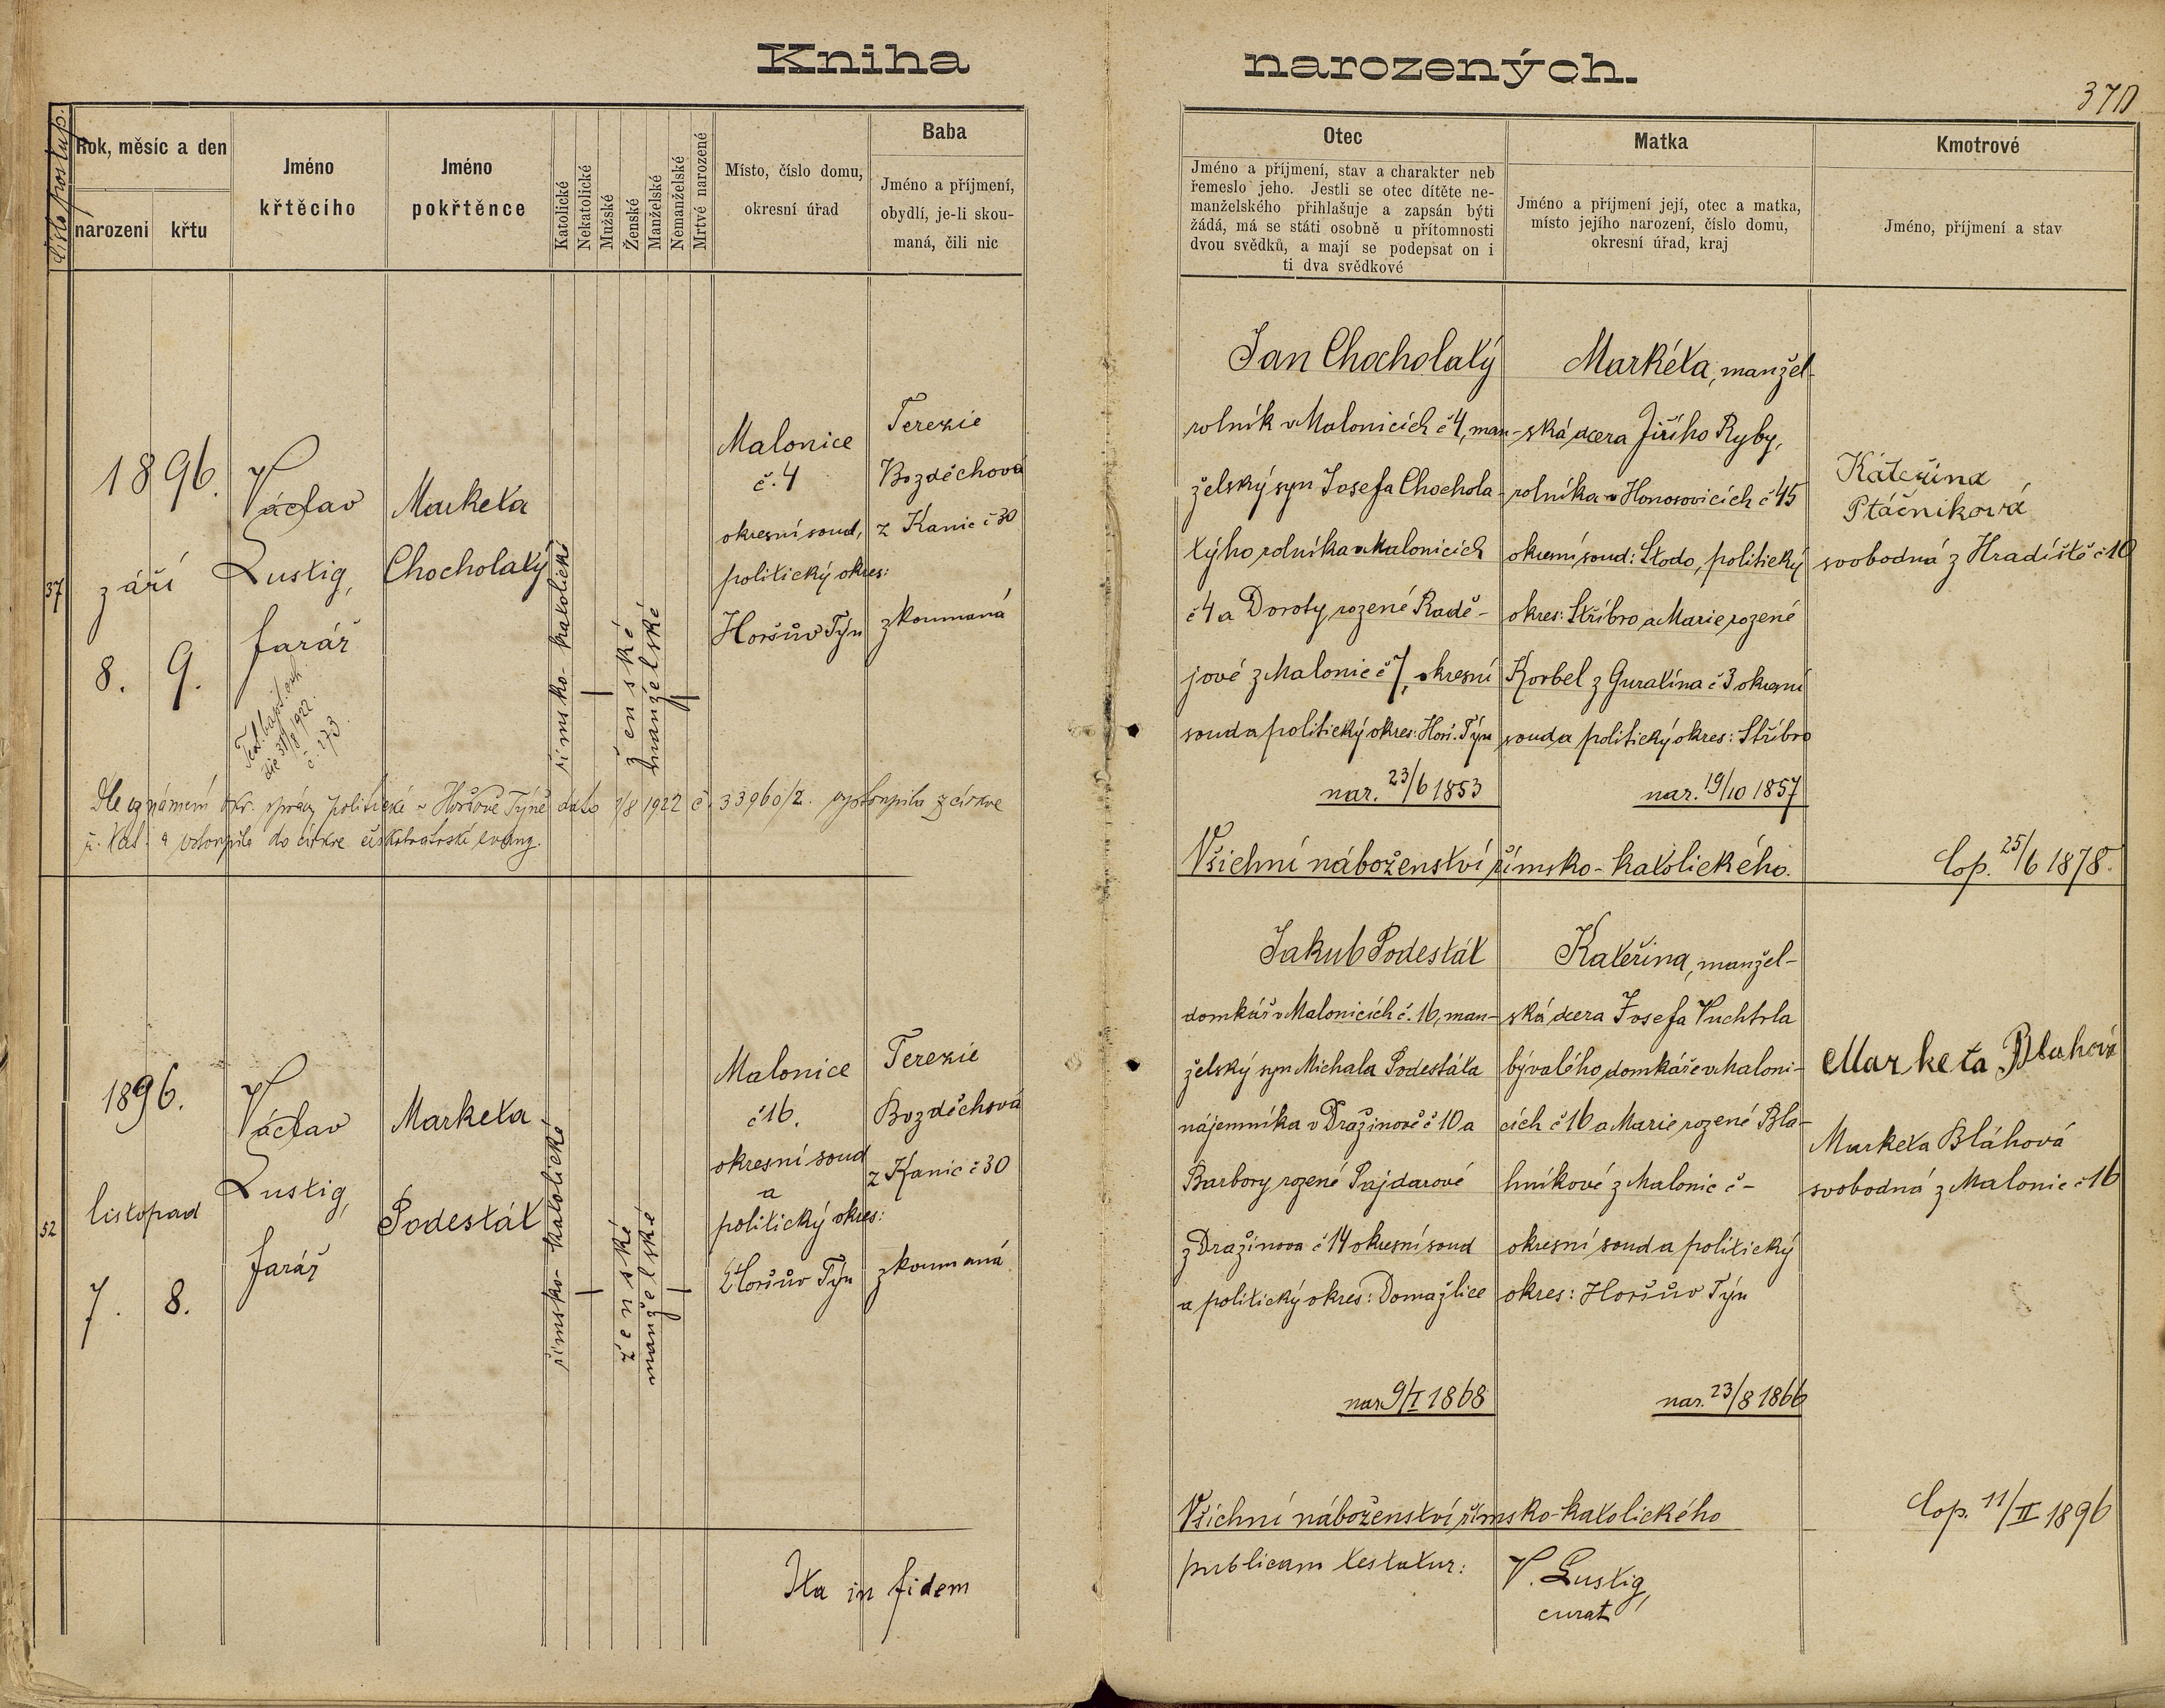 Kniha narozených.
370
Číslo postup.
Rok, měsíc a den
narození
křtu
Jméno
křtěcího
Jméno
pokřtěnce
Katolické
Nekatolické
Mužské
Ženské
Manželské
Nemanželské
Mrtvé narozené
Místo, číslo domu,
okresní úřad
Baba
Jméno a příjmení,
obydlí, je-li skou-
maná, čili nic
Otec
Jméno a příjmení, stav a charakter neb
řemeslo jeho. Jestli se otec dítěte ne-
manželského přihlašuje a zapsán býti
žádá, má se státi osobně u přítomnosti
dvou svědků, a mají se podepsat on i
ti dva svědkové
Matka
Jméno a příjmení její, otec a matka,
místo jejího narození, číslo domu,
okresní úřad, kraj
Kmotrové
Jméno, příjmení a stav
37
1896.
září
8. 9.
Václav
Lustig,
farář
31/8 1922
č. 273
Marketa
Chocholatý
římsko-katolické
ženské
manželské
Malonice
č. 4
okresní soud,
politický okres:
Horšův Týn
Terezie
Bozděchová
z Kanic č 30
zkoumaná
Jan Chocholatý
rolník v Malonicích č 4, man-
želský syn Josefa Chochola-
týho rolníka v Malonicích
č 4 a Doroty rozené Radě-
jové z Malonic č 7, okresní
soud a politický okres: Horš. Týn
nar. 23/6 1853
Markéta, manžel-
ská dcera Jiřího Ryby,
rolníka v Honosovicích č 45
okresní soud: Stodo, politický
okres: Stříbro a Marie rozené
Korbel z Guratína č 3 okresní
soud a politický okres: Stříbro
nar. 19/10 1857
Kateřina
Ptáčníková
svobodná z Hradiště č 10
Dle oznámení okr. správy politické v Horšově Týně dato 7/8 1922 č. 33960/2. vystoupila z církve
ř. kat. a vstoupila do církve českobratrské evang.
Všichni náboženství římsko-katolického.
Cop. 25/6 1878.
52
1896.
listopad
7. 8.
Václav
Lustig,
farář
Marketa
Podestát
římsko-katolické
ženské
manželské
Malonice
č 16.
okresní soud
a
politický okres:
Horšův Týn
Terezie
Bozděchová
z Kanic č 30
zkoumaná
Jakub Podestát
domkář v Malonicích č. 16, man-
želský syn Michala Podestáta
nájemníka v Dražinově č 10 a
Barbory rozené Pajdarové
z Dražinova č 14 okresní soud
a politický okres: Domažlice
nar. 9/I 1868
Kateřina, manžel-
ská dcera Josefa Vuchtrla
bývalého domkáře v Maloni-
cích č 16 a Marie rozené Bla-
hníkové z Malonic č -
okresní soud a politický
okres: Horšův Týn
nar. 23/8 1866
Marketa Blahová
Marketa Bláhová
svobodná z Malonic č 16
Všichni náboženství římsko-katolického
Cop. 11/II 1896
Ita in fidem publicam testatur: V. Lustig,
curat